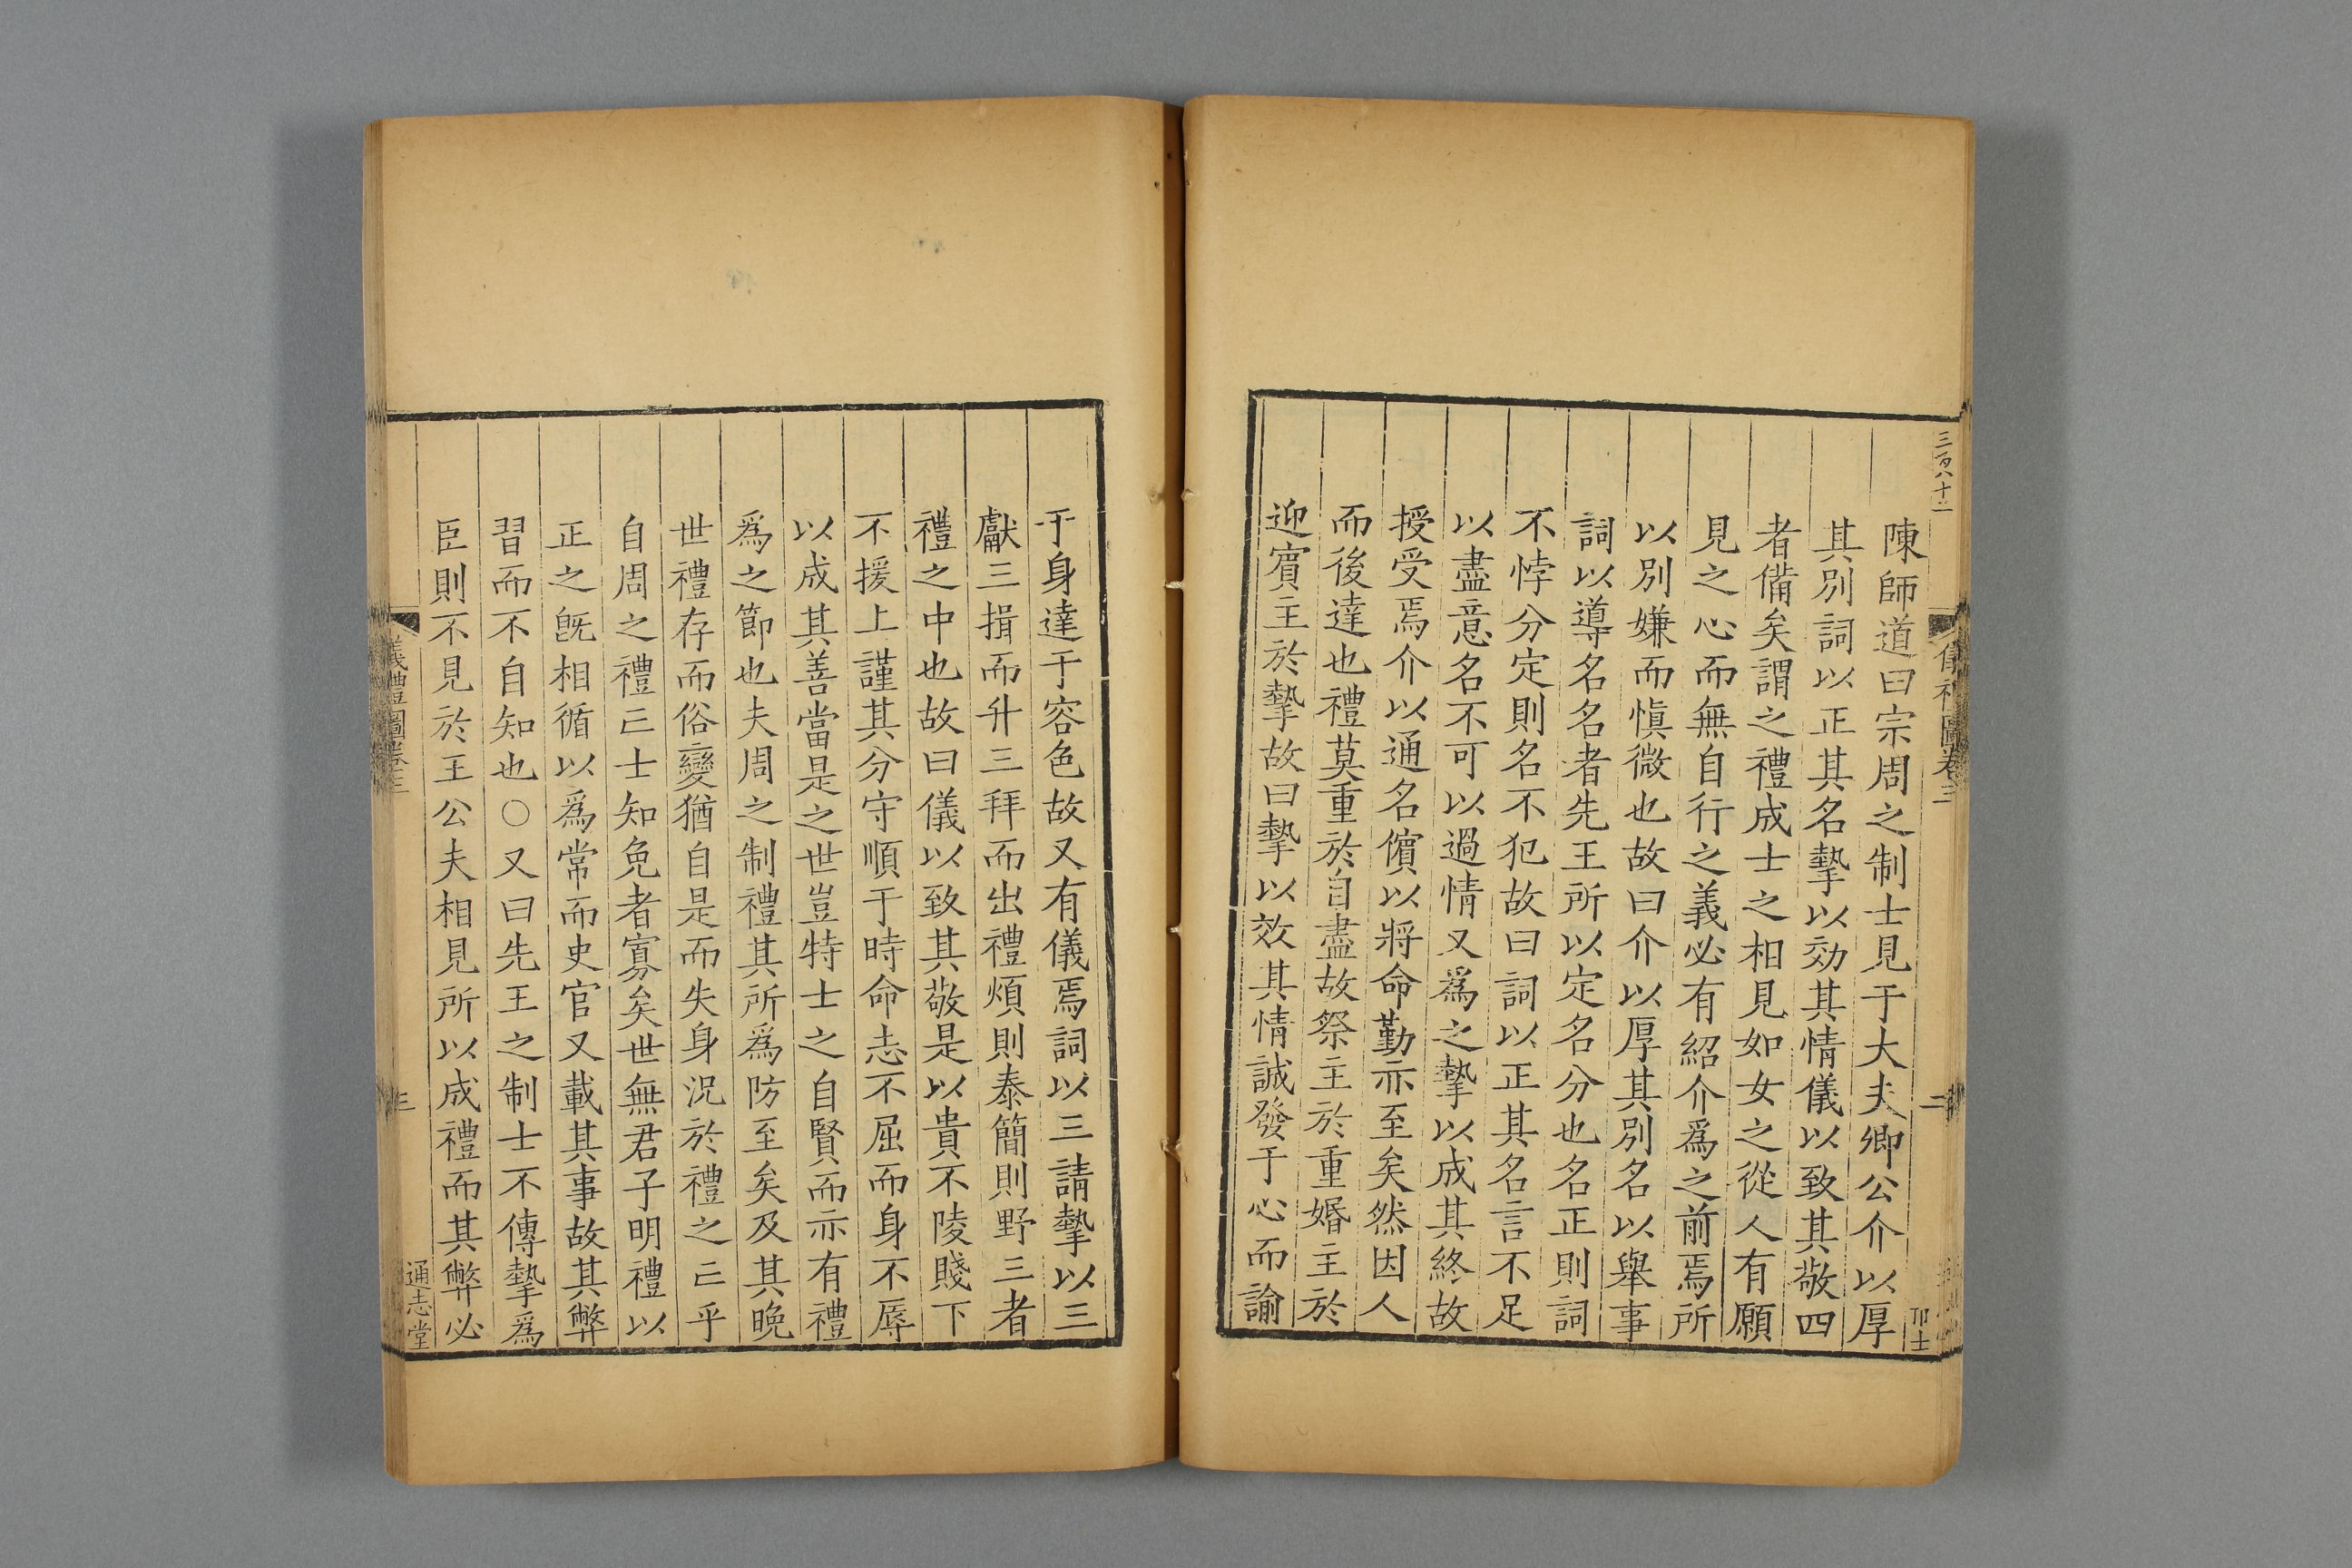 三百八十二
儀禮圖卷三
二
卭士
陳師道曰宗周之制士見于大夫卿公介以厚
其別詞以正其名摯以効其情儀以致其敬四
者備矣謂之禮成士之相見如女之從人有願
見之心而無自行之義必有紹介爲之前焉所
以別嫌而愼微也故曰介以厚其別名以舉事
詞以導名名者先王所以定名分也名正則詞
不悖分定則名不犯故曰詞以正其名言不足
以盡意名不可以過情又爲之摯以成其終故
授受焉介以通名儐以將命勤亦至矣然因人
而後達也禮莫重於自盡故祭主於重婚主於
迎賓主於摯故曰摯以效其情誠發于心而諭
于身達于容色故又有儀焉詞以三請摯以三
獻三揖而升三拜而出禮煩則泰簡則野三者
禮之中也故曰儀以致其敬是以貴不陵賤下
不援上謹其分守順于時命志不屈而身不辱
以成其善當是之世豈特士之自賢而亦有禮
爲之節也夫周之制禮其所爲防至矣及其晚
世禮存而俗變猶自是而失身況於禮之亡乎
自周之禮亡士知免者寡矣世無君子明禮以
正之旣相循以爲常而史官又載其事故其弊
習而不自知也○又曰先王之制士不傳摯爲
臣則不見於王公夫相見所以成禮而其弊必
儀禮圖卷三
三
通志堂